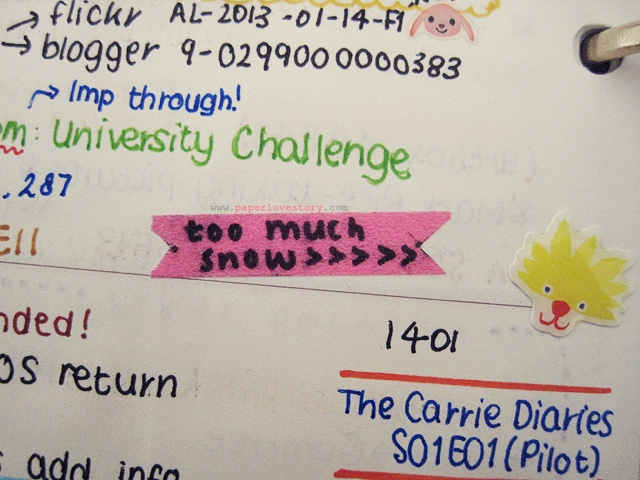 → flickr AL-2013-01-14-F1
→ blogger 9-0299000000383
Imp through!
om: University Challenge
.287
www.paperlovestory.com
too much
snow>>>>>
Ell
nded!
1401
OS return
The Carrie Diaries
S01E01(Pilot)
s add info